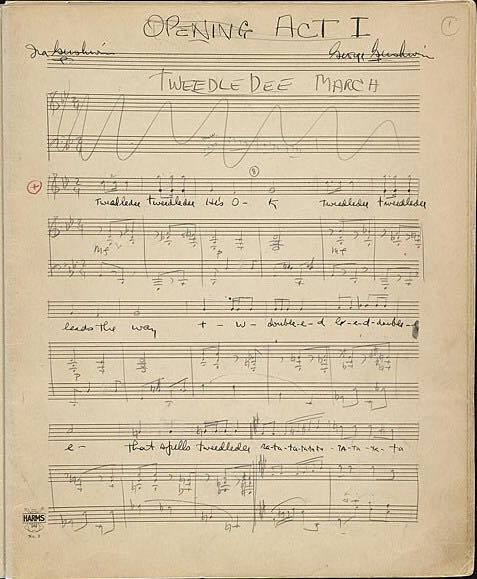 OPENING ACT I
1
Ira Gershwin
George Gershwin
TWEEDLEDEE MARCH
8
mf
p
mf
Tweedledee tweedledee He's O - K Tweedledee tweedledee
leads the way t - w - double-e-d l-e-d-double-
p
e - that spells tweedledee ra-ta-ta-ta-ta-ta - ra-ta - ra - ta
HARMS
No. 3